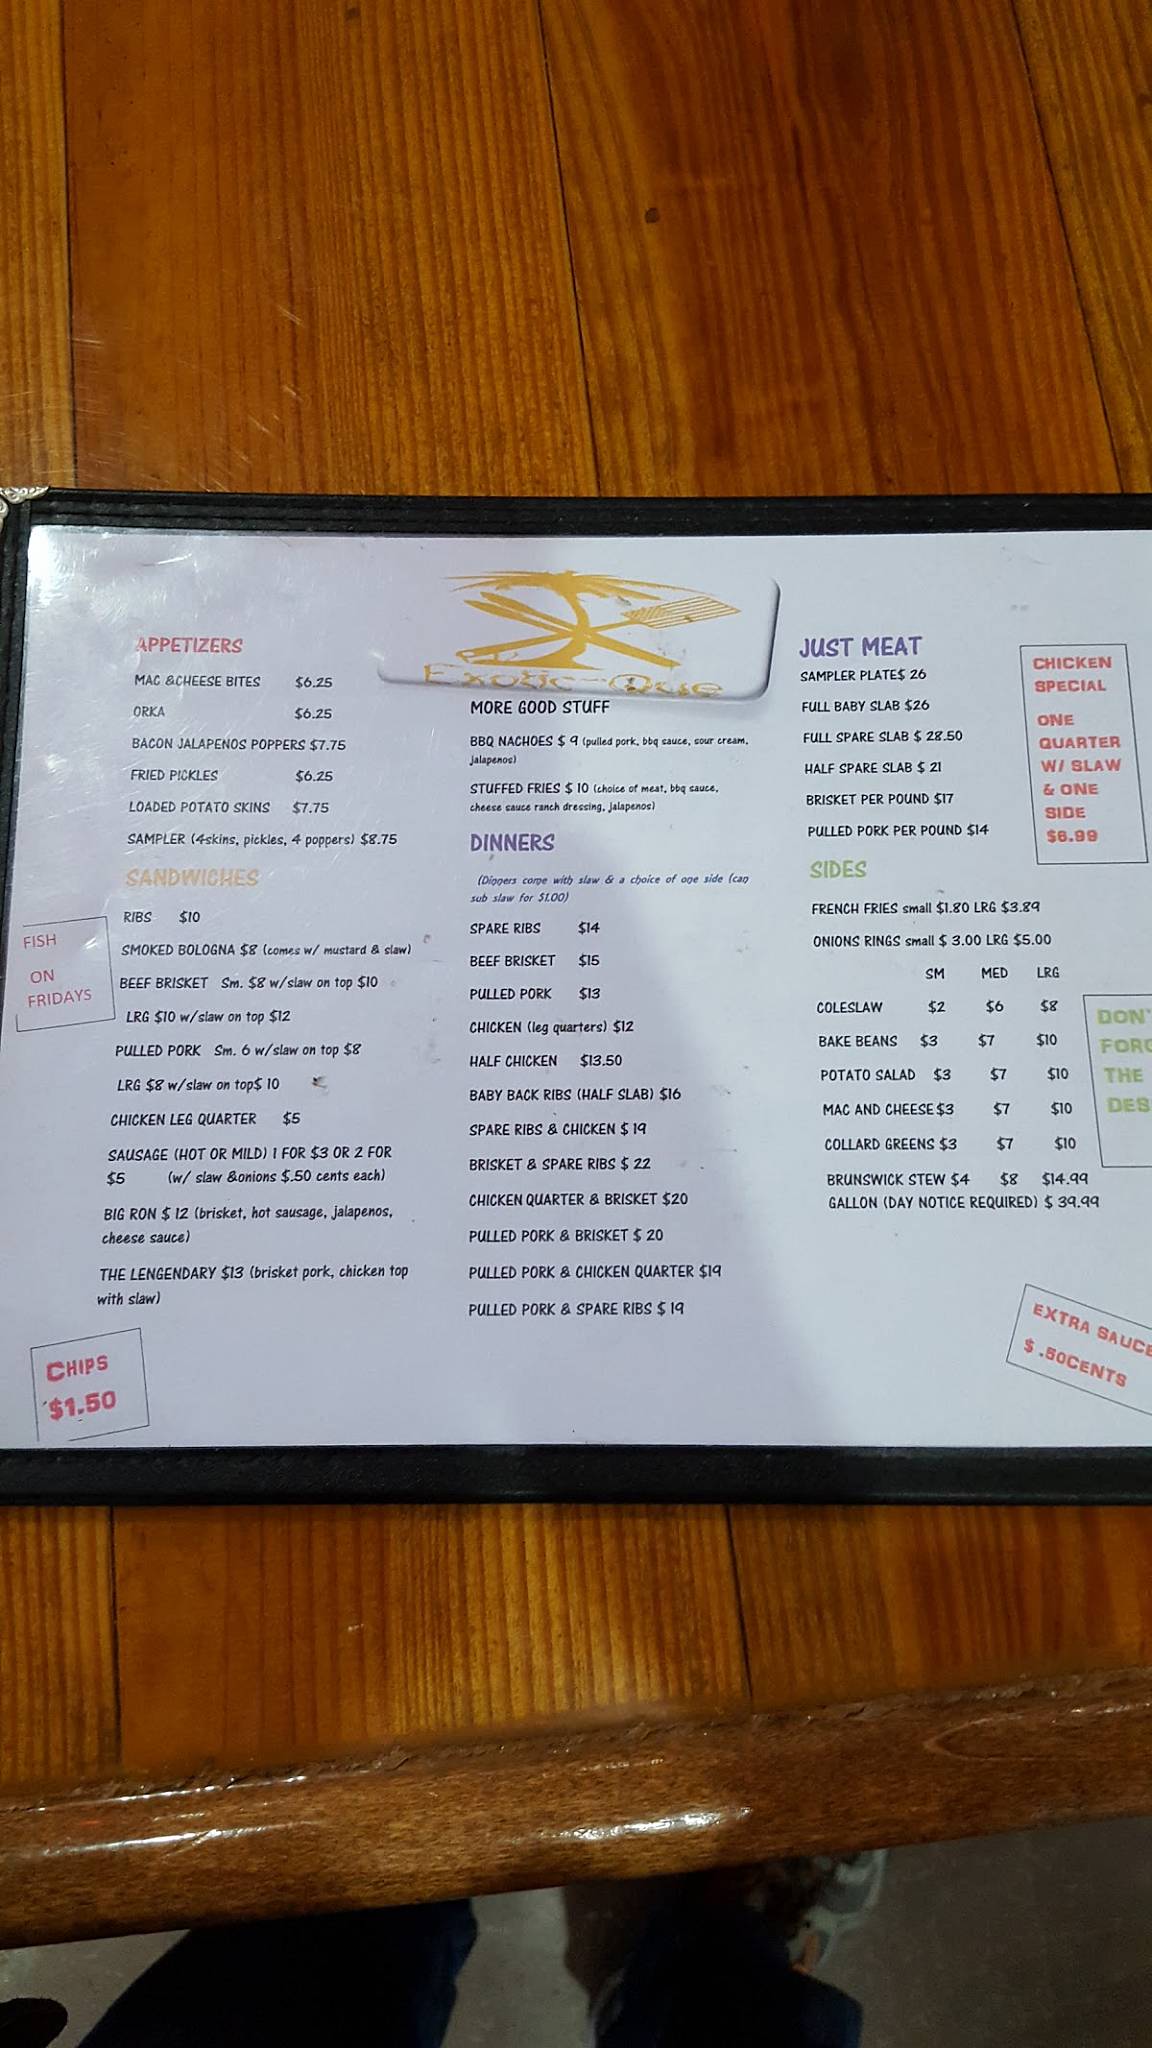 Exotic-Que
APPETIZERS
MAC &CHEESE BITES $6.25
ORKA $6.25
BACON JALAPENOS POPPERS $7.75
FRIED PICKLES $6.25
LOADED POTATO SKINS $7.75
SAMPLER (4skins, pickles, 4 poppers) $8.75
SANDWICHES
RIBS $10
SMOKED BOLOGNA $8 (comes w/ mustard & slaw)
BEEF BRISKET Sm. $8 w/slaw on top $10
LRG $10 w/slaw on top $12
PULLED PORK Sm. 6 w/slaw on top $8
LRG $8 w/slaw on top$ 10
CHICKEN LEG QUARTER $5
SAUSAGE (HOT OR MILD) 1 FOR $3 OR 2 FOR
$5 (w/ slaw &onions $.50 cents each)
BIG RON $ 12 (brisket, hot sausage, jalapenos,
cheese sauce)
THE LENGENDARY $13 (brisket pork, chicken top
with slaw)
FISH
ON
FRIDAYS
CHIPS
$1.50
MORE GOOD STUFF
BBQ NACHOES $ 9 (pulled pork, bbq sauce, sour cream,
jalapenos)
STUFFED FRIES $ 10 (choice of meat, bbq sauce,
cheese sauce ranch dressing, jalapenos)
DINNERS
(Dinners come with slaw & a choice of one side (can
sub slaw for $1.00)
SPARE RIBS $14
BEEF BRISKET $15
PULLED PORK $13
CHICKEN (leg quarters) $12
HALF CHICKEN $13.50
BABY BACK RIBS (HALF SLAB) $16
SPARE RIBS & CHICKEN $ 19
BRISKET & SPARE RIBS $ 22
CHICKEN QUARTER & BRISKET $20
PULLED PORK & BRISKET $ 20
PULLED PORK & CHICKEN QUARTER $19
PULLED PORK & SPARE RIBS $ 19
JUST MEAT
SAMPLER PLATE$ 26
FULL BABY SLAB $26
FULL SPARE SLAB $ 28.50
HALF SPARE SLAB $ 21
BRISKET PER POUND $17
PULLED PORK PER POUND $14
SIDES
FRENCH FRIES small $1.80 LRG $3.89
ONIONS RINGS small $ 3.00 LRG $5.00
SM MED LRG
COLESLAW $2 $6 $8
BAKE BEANS $3 $7 $10
POTATO SALAD $3 $7 $10
MAC AND CHEESE$3 $7 $10
COLLARD GREENS $3 $7 $10
BRUNSWICK STEW $4 $8 $14.99
GALLON (DAY NOTICE REQUIRED) $ 39.99
CHICKEN
SPECIAL
ONE
QUARTER
W/ SLAW
& ONE
SIDE
$6.99
DON'
FORG
THE
DES
EXTRA SAUCE
$ .50CENTS